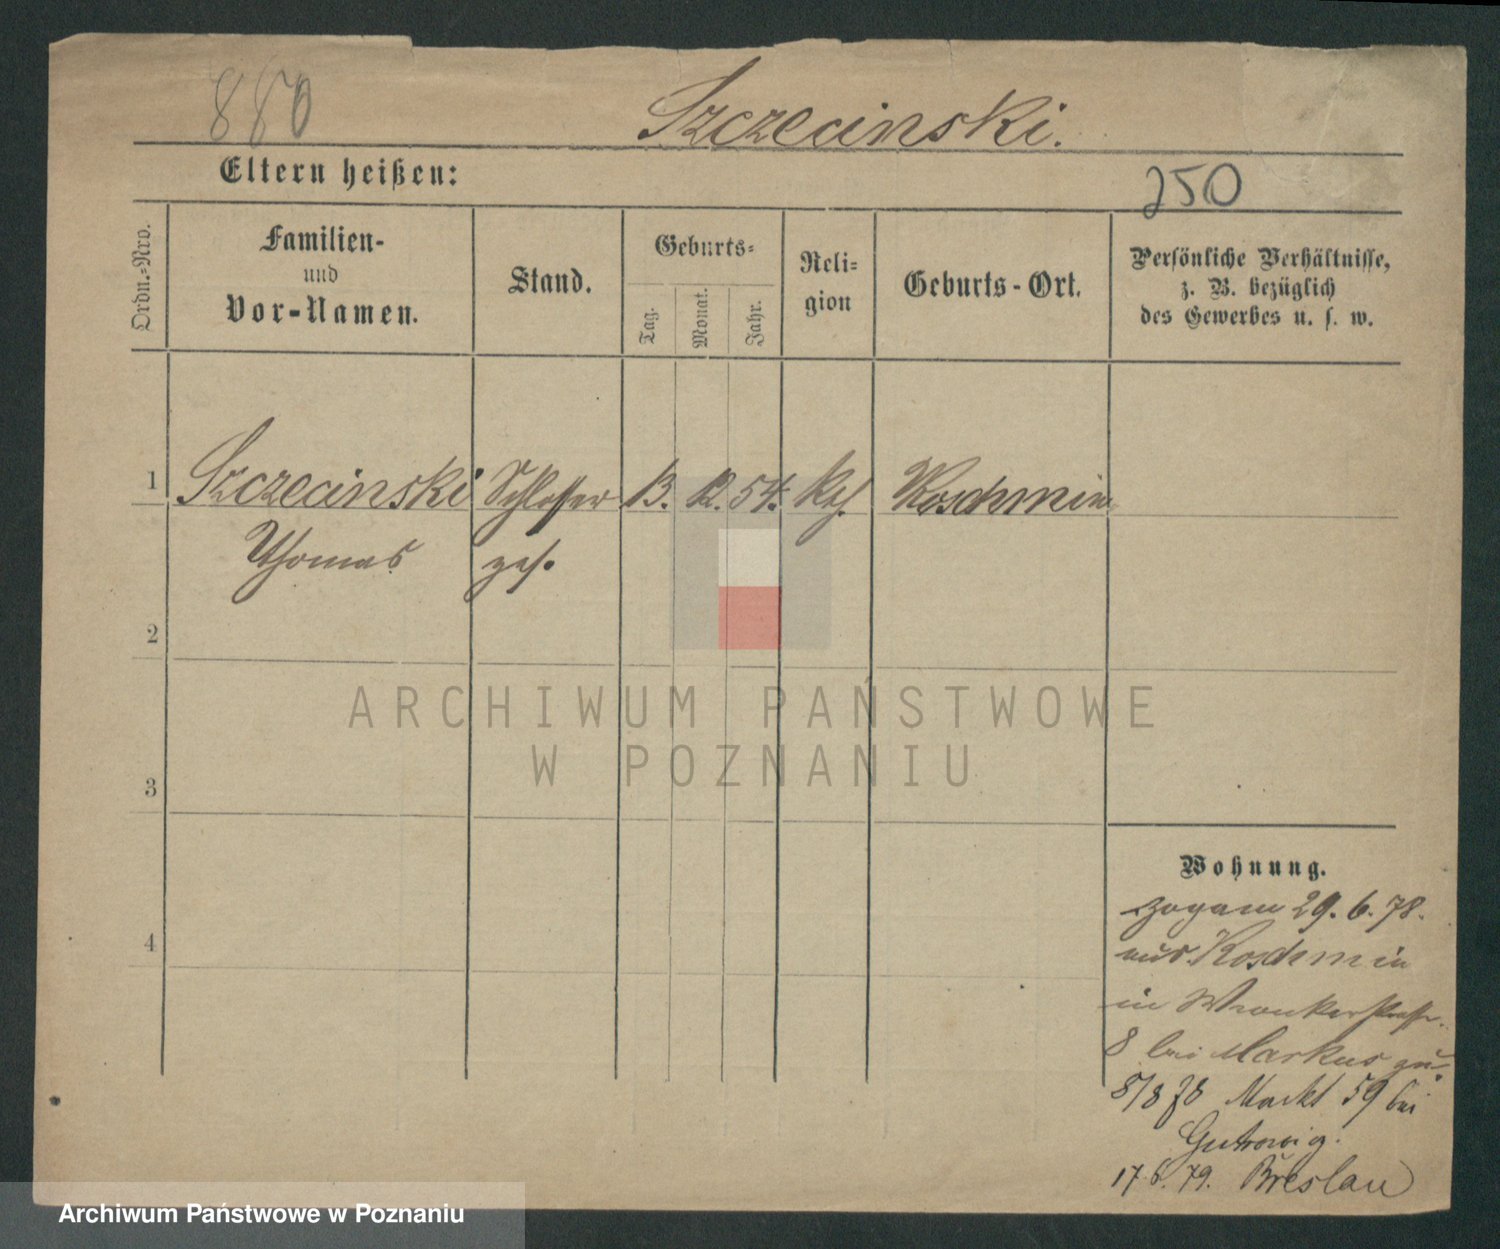 880
Szczecinski.
Eltern heißen:
250
Ordn.-Nro.
Familien-
und
Vor-Namen.
Stand.
Geburts-
Tag.
Monat.
Jahr.
Reli-
gion
Geburts-Ort.
Persönliche Verhältnisse,
z. B. bezüglich
des Gewerbes u. s. w.
1 Szczecinski Schlosser 13. 12. 54. kth. Koschmin
Thomas ges.
2
ARCHIWUM PAŃSTWOWE
W POZNANIU
3
4
Wohnung.
zog am 29. 6. 78.
aus Koschmin
in Wronkerstraße
8 bei Markus zu.
8/8 78 Markt 59 bei
17.6. 79. Breslau
Archiwum Państwowe w Poznaniu